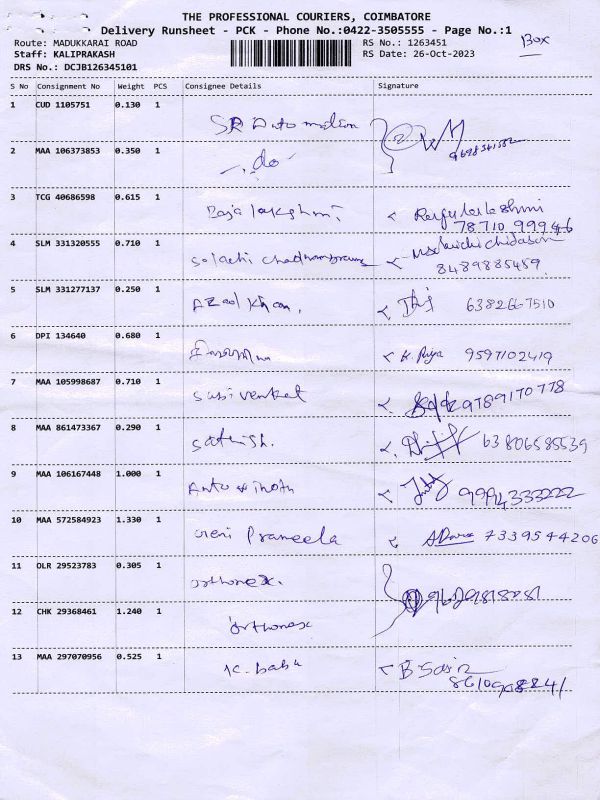 THE PROFESSIONAL COURIERS, COIMBATORE
Delivery Runsheet - PCK - Phone No.:0422-3505555 - Page No.:1
Route: MADUKKARAI ROAD RS No.: 1263451 BOX
Staff: KALIPRAKASH RS Date: 26-Oct-2023
DRS No.: DCJB126345101
S No Consignment No Weight PCS Consignee Details Signature
1 CUD 1105751 0.130 1
SR Automation
2 MAA 106373853 0.350 1
do
3 TCG 40686598 0.615 1
Rajalakshmi
78710 99946
4 SLM 331320555 0.710 1
8489885459
5 SLM 331277137 0.250 1
Azad Khan. 6382667510
6 DPI 134640 0.680 1
K. Priya 9597102419
7 MAA 105998687 0.710 1
Sasi venkat 9789170778
8 MAA 861473367 0.290 1
Sathish. 63806585539
9 MAA 106167448 1.000 1
Anto 9994333222
10 MAA 572584923 1.330 1
Prameela 7339544206
11 OLR 29523783 0.305 1
orthonex.
12 CHK 29368461 1.240 1
orthonex
13 MAA 297070956 0.525 1
K. babu B